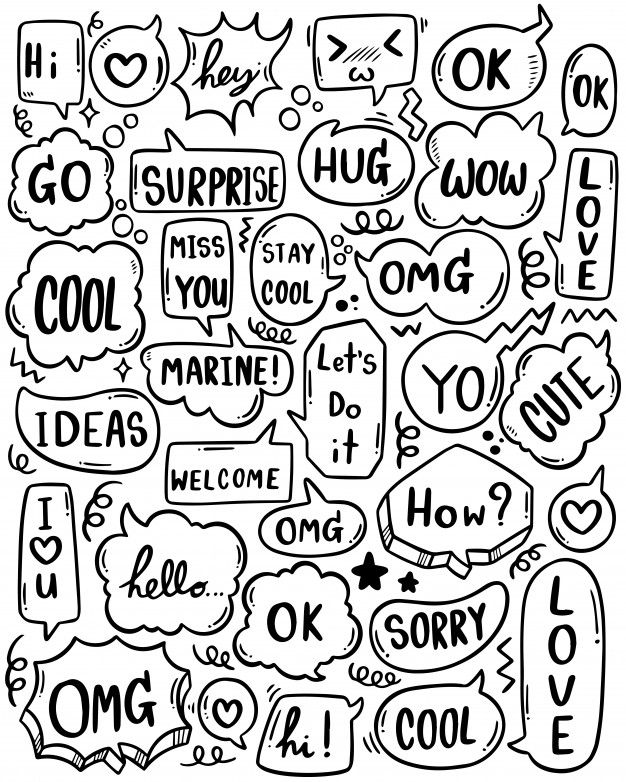 Hi
hey
OK
OK
GO
SURPRISE
HUG
WOW
L
O
V
E
COOL
MISS
YOU
STAY
COOL
OMG
MARINE!
Let's
Do
it
YO
CUTE
IDEAS
WELCOME
I
u
hello...
OMG
How?
OK
SORRY
L
O
V
E
OMG
hi!
COOL